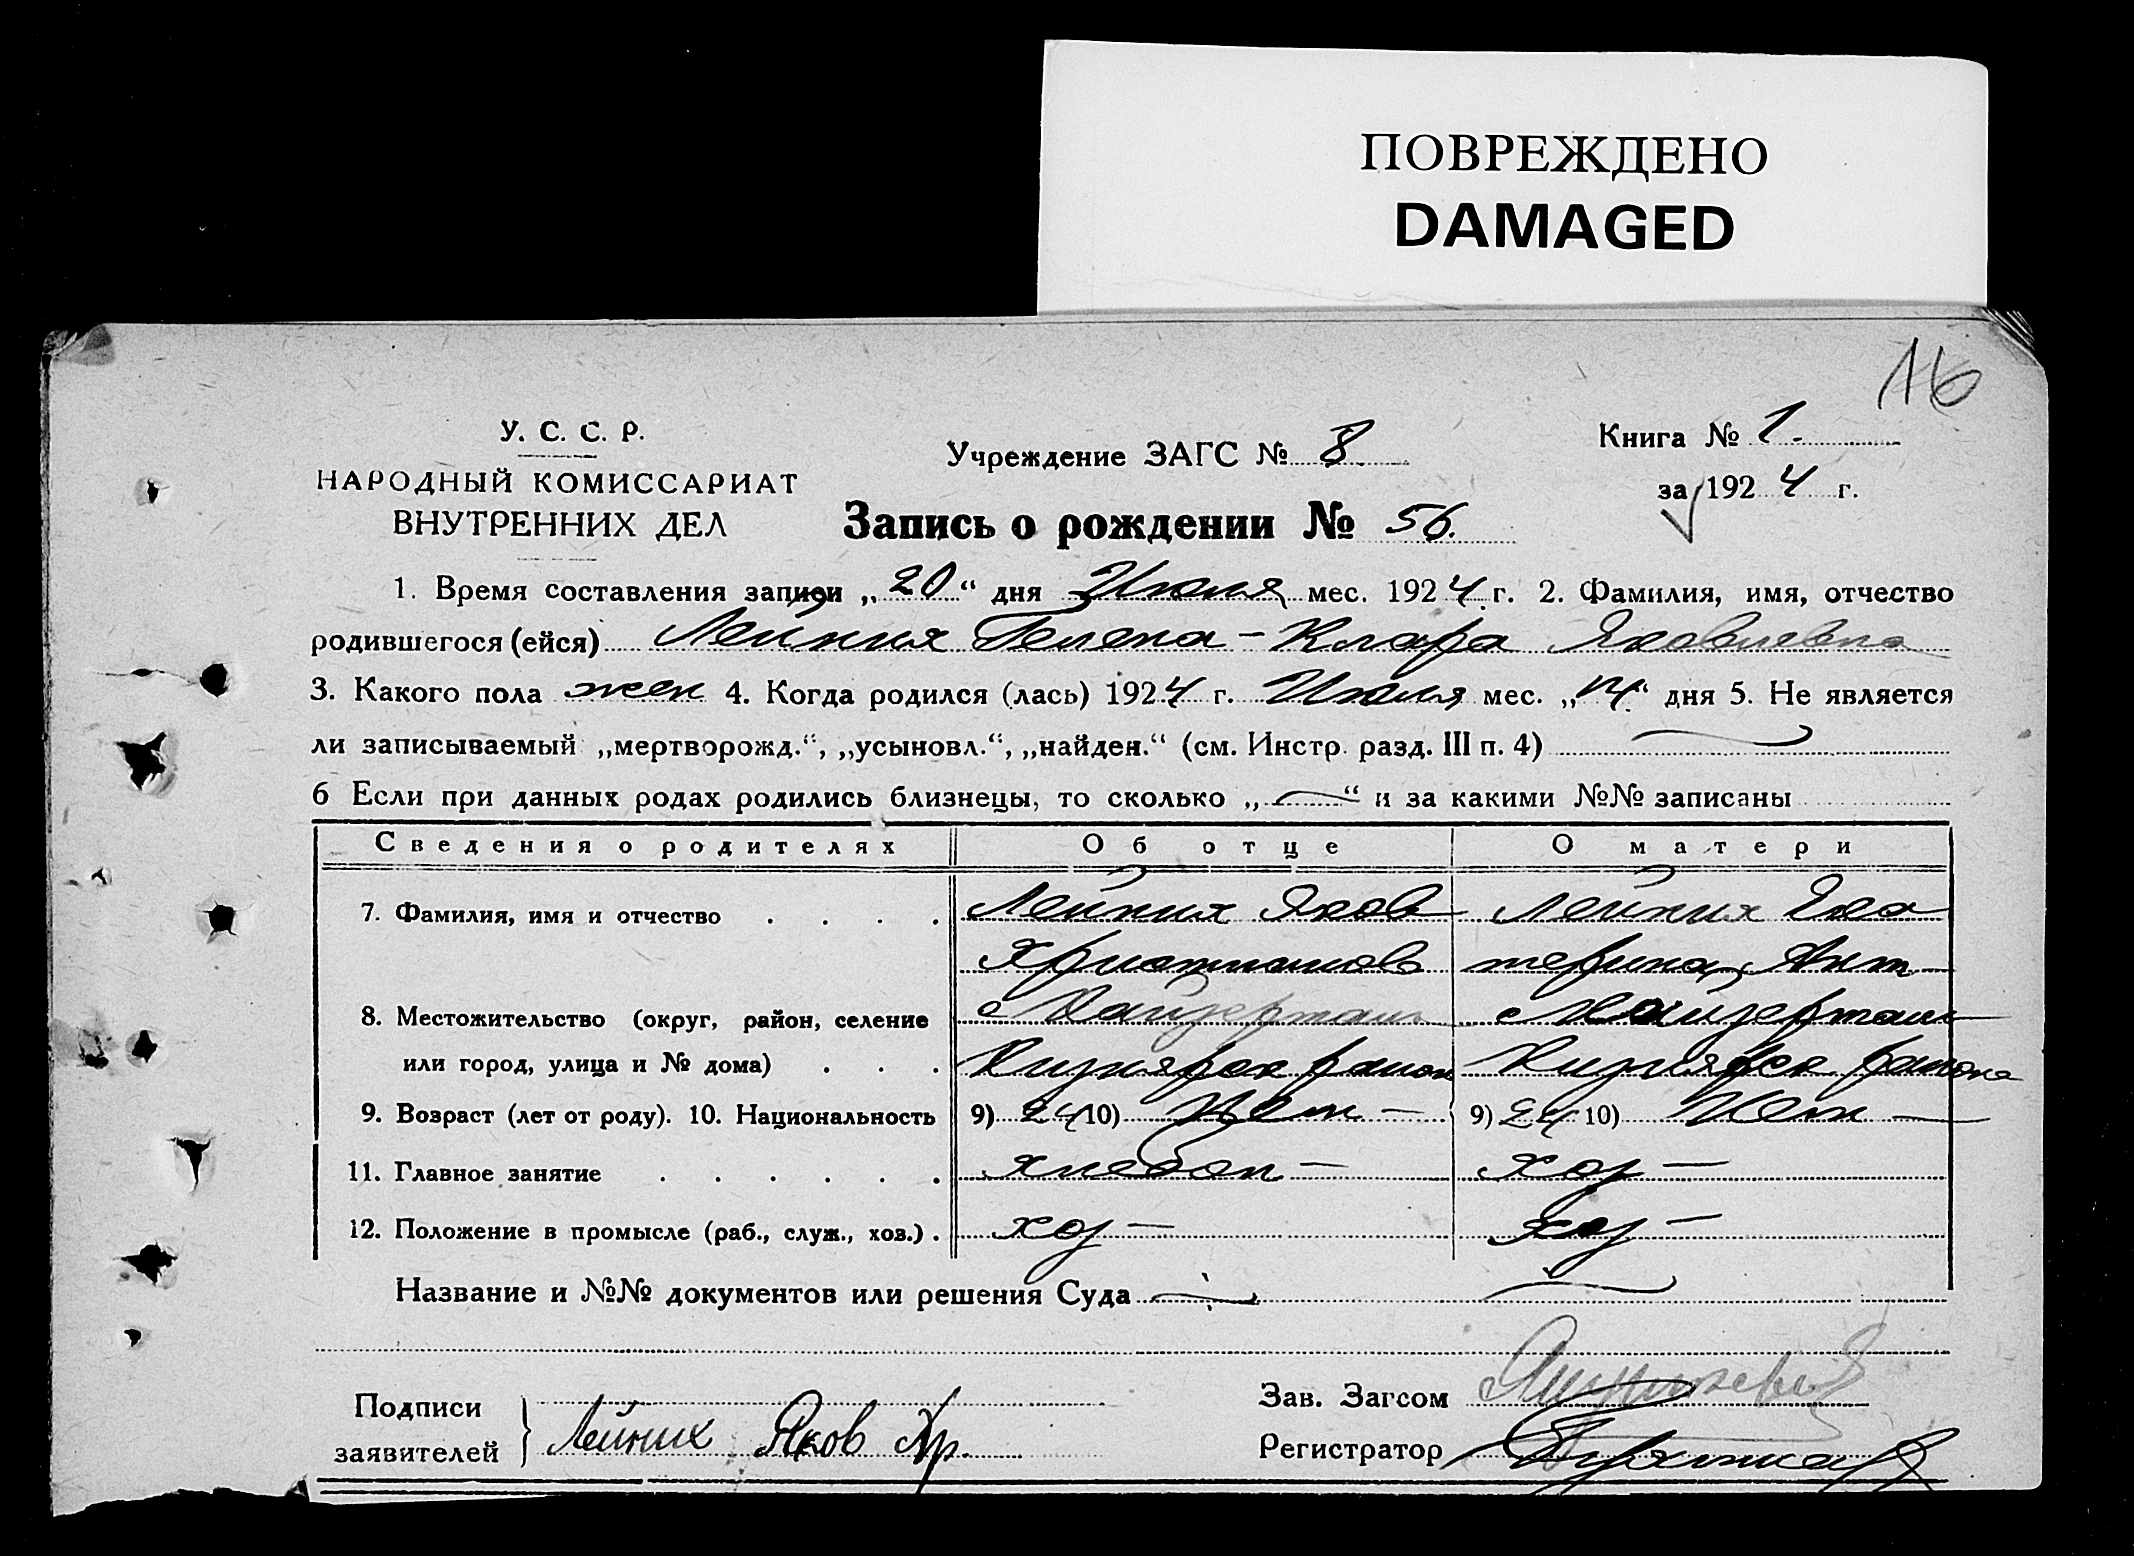 ПОВРЕЖДЕНО
DAMAGED
16
У. С. С. Р.
НАРОДНЫЙ КОМИССАРИАТ
ВНУТРЕННИХ ДЕЛ
Учреждение ЗАГС № 8
Книга № 1.
за 1924 г.
Запись о рождении № 56.
1. Время составления записи „20“ дня Июля мес. 1924 г. 2. Фамилия, имя, отчество
родившегося (ейся) Лейних Гелена-Клара Яковлевна
3. Какого пола жен 4. Когда родился (лась) 1924 г. Июля мес. „14“ дня 5. Не является
ли записываемый „мертворожд.“, „усыновл.“, „найден.“ (см. Инстр. разд. III п. 4)
6 Если при данных родах родились близнецы, то сколько „—“ и за какими №№ записаны
Сведения о родителях Об отце О матери
7. Фамилия, имя и отчество Лейних Яков Лейних Ека
Христианов терина Ант
8. Местожительство (округ, район, селение с Кайзерталь с Кайзерталь
или город, улица и № дома) район района
9. Возраст (лет от роду). 10. Национальность 9) 24 10) Нем — 9) 24 10) Нем —
11. Главное занятие хлебоп — хоз —
12. Положение в промысле (раб., служ., хоз.) хоз — хоз —
Название и №№ документов или решения Суда —
Подписи
заявителей } Лейних Яков Хр.
Зав. Загсом
Регистратор